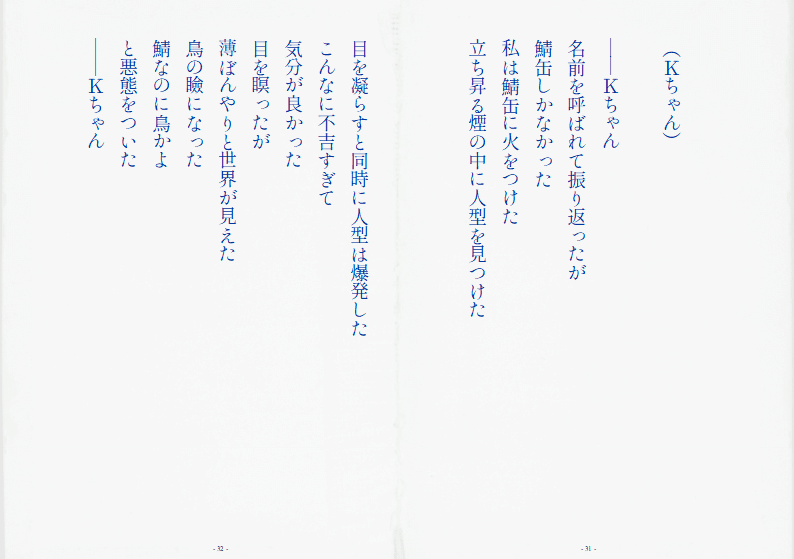 （Kちゃん）
――Kちゃん
名前を呼ばれて振り返ったが
鯖缶しかなかった
私は鯖缶に火をつけた
立ち昇る煙の中に人型を見つけた
- 31 -
目を凝らすと同時に人型は爆発した
こんなに不吉すぎて
気分が良かった
目を瞑ったが
薄ぼんやりと世界が見えた
鳥の瞼になった
鯖なのに鳥かよ
と悪態をついた
――Kちゃん
- 32 -